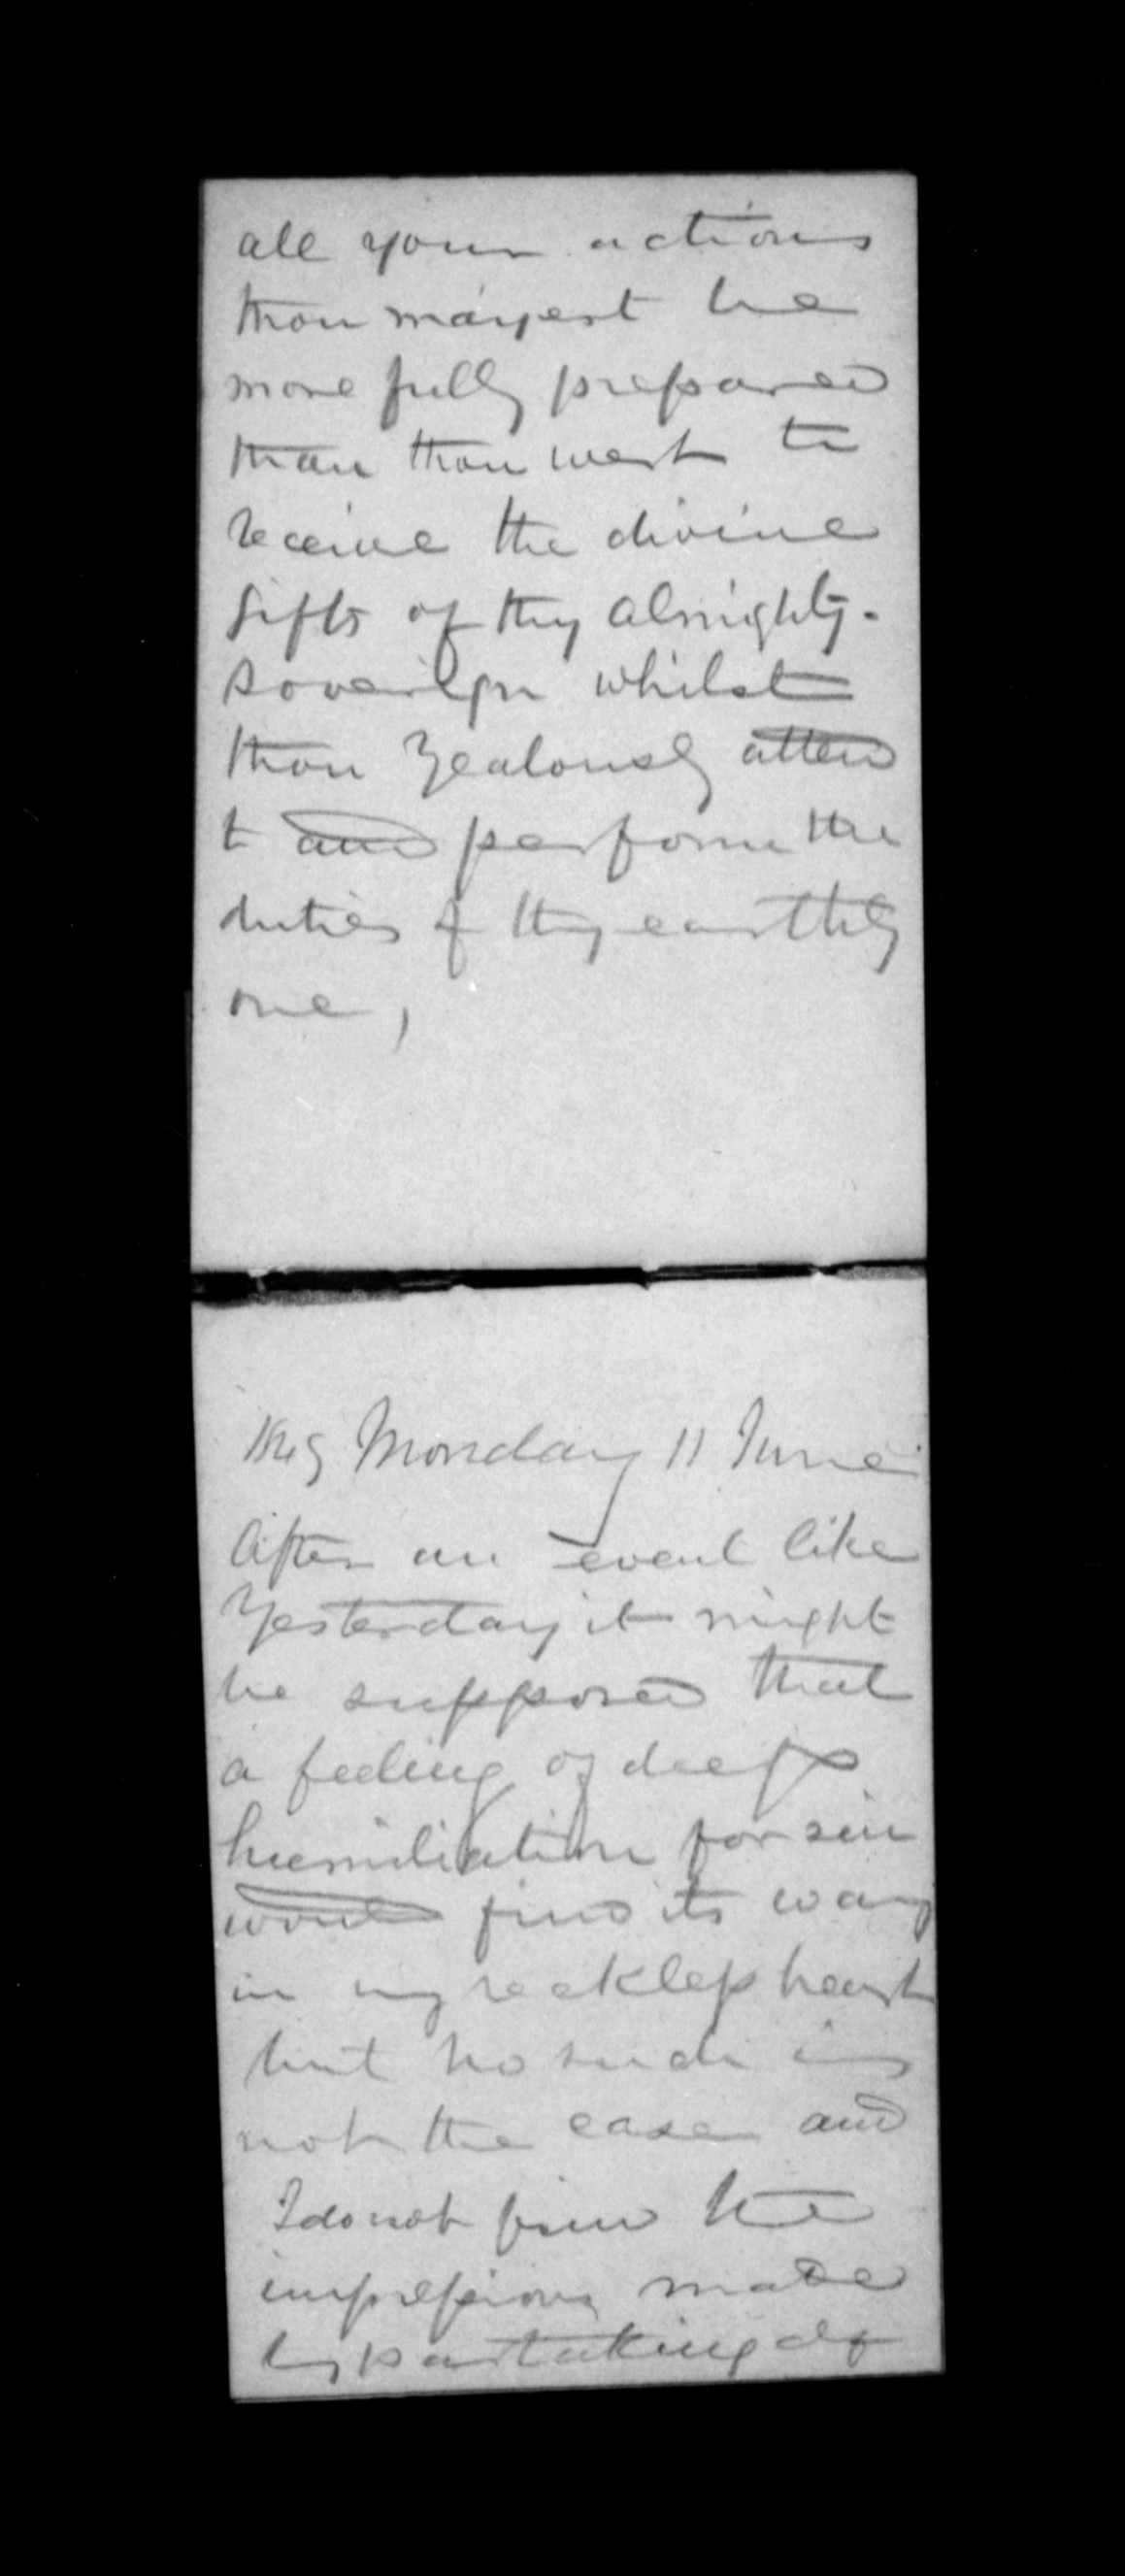 all your actions
thou mayest be
more fully prepared
than thou wert to
receive the divine
gifts of thy Almighty
Sovereign whilst
thou zealously attend
to and perform the
duties of thy earthly
one,
Monday 11 June
After an event like
Yesterday it might
be supposed that
a feeling of deep
humiliation for sin
would find its way
in my reckless heart
but no such is
not the case and
I do not find the
impressions made
by partaking of